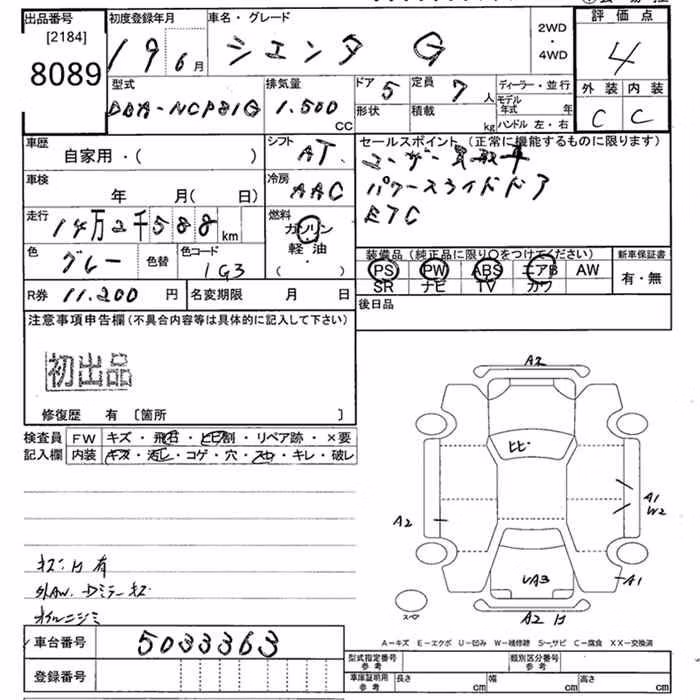 出品番号 [2184] 8089
初度登録年月 19 6月
車名・グレード シエンタ G
2WD・4WD
評価点 4
外装 C 内装 C
型式 DBA-NCP81G
排気量 1.500 CC
ドア 5 定員 7人
形状 積載 kg
ディーラー・並行
モデル年式 年
ハンドル 左・右
車歴 自家用・( )
シフト AT
セールスポイント (正常に機能するものに限ります)
ユーザー買取車
パワースライドドア
ETC
車検 年 月( 日)
冷房 AAC
走行 14万2千588km
燃料 ガソリン・軽油・( )
色 グレー 色替 色コード 1G3
装備品 (純正品に限り○をつけてください) 新車保証書
PS PW ABS エアB AW 有・無
SR ナビ TV カワ
R券 11.200円 名変期限 月 日
後日品
注意事項申告欄 (不具合内容等は具体的に記入して下さい)
初出品
修復歴 有 〔箇所 〕
検査員 FW キズ・飛石・ヒビ割・リペア跡・×要
記入欄 内装 キズ・汚レ・コゲ・穴・スレ・キレ・破レ
A2
ヒビ
A1
W2
A2
A1
UA3
スペア
A2
キズ・凹有
外AW.Dミラーキズ
オイルニジミ
A-キズ E-エクボ U-凹み W-補修跡 S-サビ C-腐食 XX-交換済
車台番号 5033363
登録番号
型式指定番号 参考 類別区分番号 参考
車庫証明用 参考 長さ cm 幅 cm 高さ cm